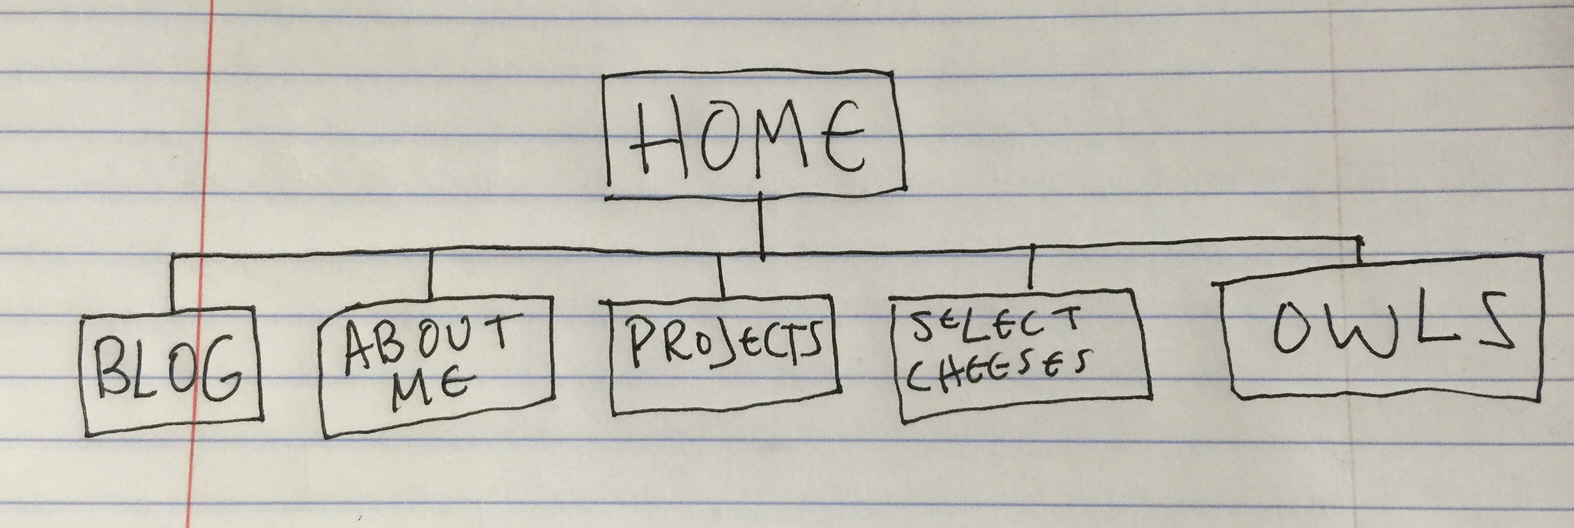 HOME
BLOG
ABOUT
ME
PROJECTS
SELECT
CHEESES
OWLS